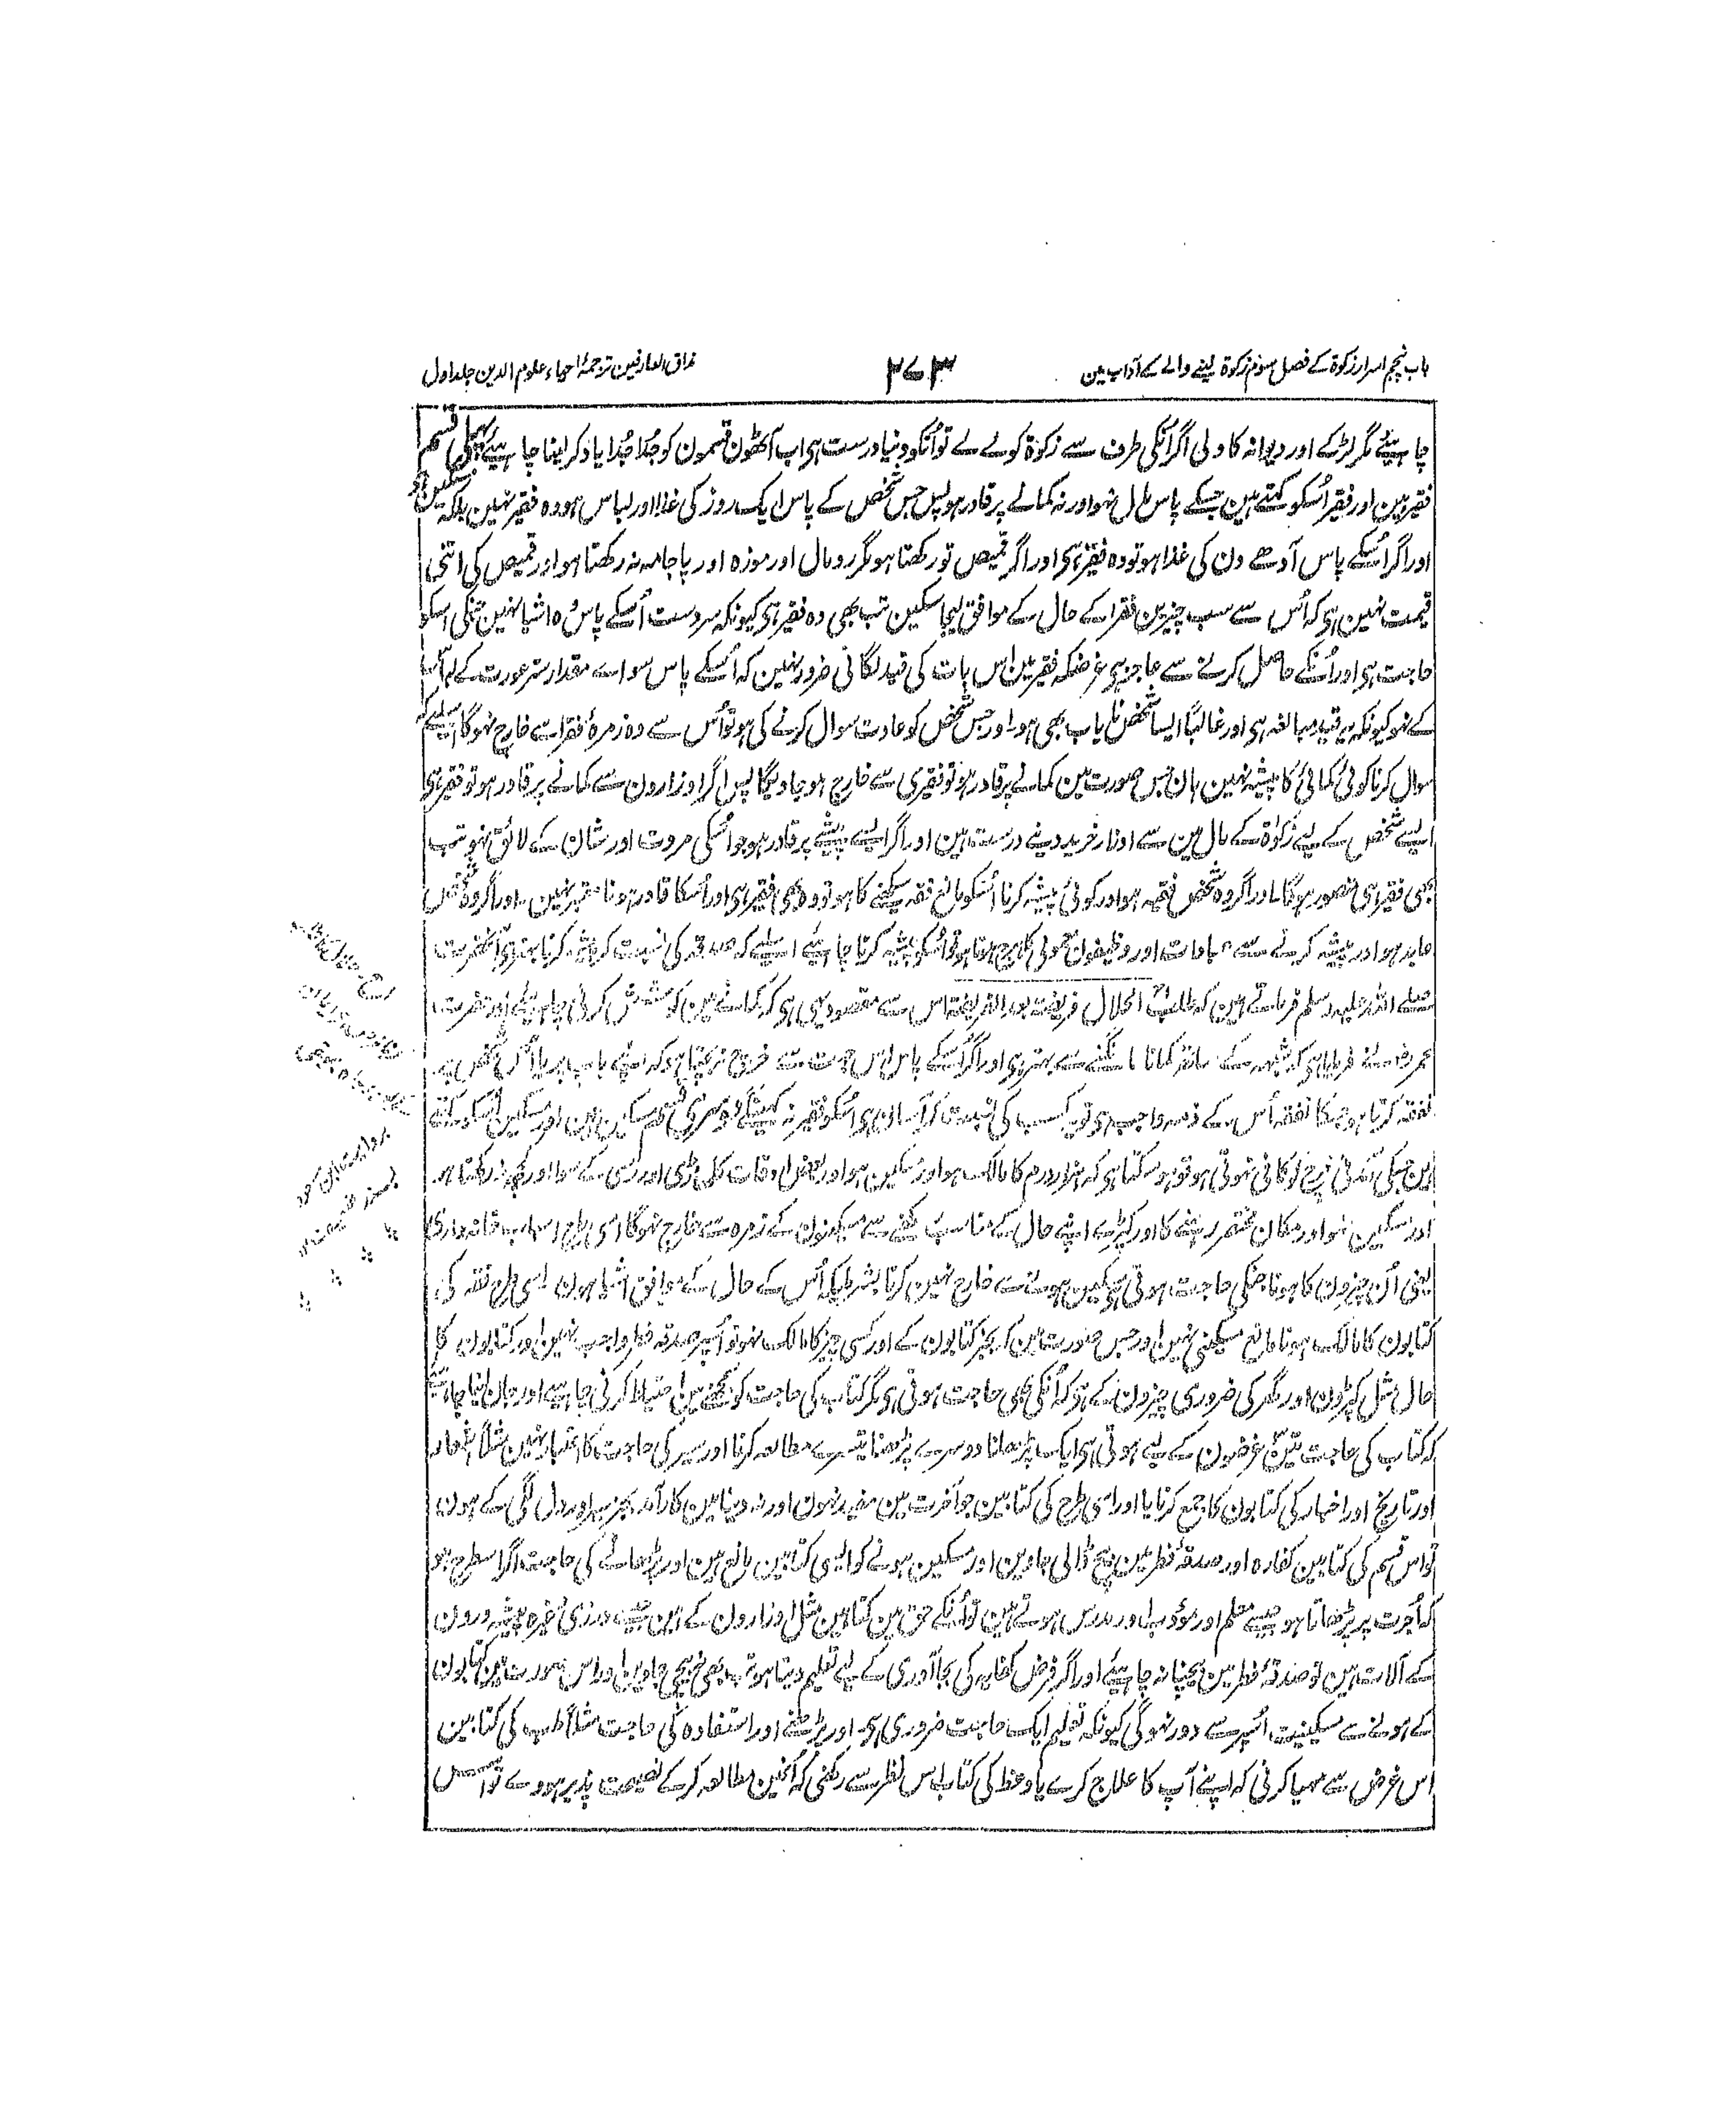 باب پنجم اسرار زکوٰۃ کے فصل سوم زکوٰۃ لینے والے کے آداب مین
۲۷۳
مذاق العارفین ترجمۂ احیاء علوم الدین جلد اول
چاہیئے مگر لڑکے اور دیوانہ کا ولی اگر اُنکی طرف سے زکوٰۃ کو لے لے تو اُنکو دینا درست ہی اب آٹھون قسمون کو جُدا جُدا یاد کر لینا چاہیئے پہلی قسم
فقیر ہین اور فقیر اُسکو کہتے ہین جسکے پاس مال نہو اور نہ کمانے پر قادر ہو پس جس شخص کے پاس ایک روز کی غذا اور لباس ہو وہ فقیر نہین بلکہ مسکین ہی
اور اگر اُسکے پاس آدھے دن کی غذا ہو تو وہ فقیر ہی اور اگر قمیص تو رکھتا ہو مگر رومال اور موزہ اور پاجامہ نہ رکھتا ہو اور قمیص کی اتنی
قیمت نہین ہی کہ اُس سے سب چیزین فقرا کے حال کے موافق لیجا سکین تب بھی وہ فقیر ہی کیونکہ سردست اُسکے پاس وہ اشیا نہین جنکی اسکو
حاجت ہی اور اُنکے حاصل کرنے سے عاجز ہی غرضکہ فقیر مین اس بات کی قید لگانی ضرور نہین کہ اُسکے پاس سواے مقدار ستر عورت کے لباس
کے نہو کیونکہ یہ قید مبالغہ ہی اور غالبًا ایسا شخص نایاب بھی ہو۔ اور جس شخص کو عادت سوال کرنے کی ہو تو اُس سے وہ زمرۂ فقرا سے خارج نہوگا اسلیے کہ
سوال کرنا کوئی کمائی کا پیشہ نہین ہان جس صورت مین کمانے پر قادر ہو تو فقیری سے خارج ہو جاویگا پس اگر اوزارون سے کمانے پر قادر ہو تو فقیر ہی
ایسے شخص کے لیے زکوٰۃ کے مال مین سے اوزار خرید دینے درست ہین اور اگر ایسے پیشے پر قادر ہو جو اُسکی مروت اور شان کے لائق نہو تب
بھی فقیر ہی متصور ہوگا۔ اور اگر وہ شخص فقیہ ہو اور کوئی پیشہ کرنا اُسکو مانع فقہ سیکھنے کا ہو تو وہ بھی فقیر ہی اور اُسکا قادر ہونا معتبر نہین۔ اور اگر وہ شخص
عابد ہو اور پیشہ کرنے سے عبادات اور وظیفون معمولی کا ہرج ہوتا ہو تو اُسکو پیشہ کرنا چاہیئے اسلیے کہ صدقہ کی نسبت کر پیشہ کرنا بہتر ہی آنحضرت
صلے اللہ علیہ وسلم فرماتے ہین کہ طلب الحلال فریضۃ بعد الفریضۃ اس سے مقصود یہی ہی کہ کمانے مین کوشش کرنی چاہیئے اور حضرت
عمر رضہ نے فرمایا ہی کہ شبہہ کے ساتھ کمانا مانگنے سے بہتر ہی اور اگر اُسکے پاس اس جہت سے خرچ نہ بچتا ہو کہ اپنے باپ پر یا اُس شخص پر
نفقہ کرتا ہو جسکا نفقہ اُس کے ذمہ واجب ہی تو یہ کسب کی نسبت کر آسان ہی اُسکو فقیر نہ کہینگے دوسری قسم مساکین ہین اور مسکین اُسکو کہتے
ہین جسکی آمدنی خرچ کو کافی نہوتی ہو تو ہو سکتا ہی کہ ہزار درم کا مالک ہو اور مسکین ہو اور بعض اوقات کلھاڑی اور رسی کے سوا اور کچھ نہ رکھتا ہو
اور مسکین نہو اور مکان مختصر رہنے کا اور کپڑے اپنے حال کے مناسب رکھنے سے مسکینون کے زمرہ سے خارج نہوگا اسی طرح اسباب خانہ داری
یعنی اُن چیزون کا ہونا جنکی حاجت ہوتی ہی مسکین ہونے سے خارج نہین کرتا بشرطیکہ اُس کے حال کے موافق اشیا ہون اسی طرح فقہ کی
کتابون کا مالک ہونا مانع مسکینی نہین اور جس صورت مین کہ بجز کتابون کے اور کسی چیز کا مالک نہو تو اُسپر صدقہ فطر واجب نہین اور کتابون کا
حال مثل کپڑون اور گھر کی ضروری چیزون کے ہی کہ اُنکی بھی حاجت ہوتی ہی مگر کتاب کی حاجت کو سمجھنے مین احتیاط کرنی چاہیے اور جان لینا چاہیئے
کہ کتاب کی حاجت تین غرضون کے لیے ہوتی ہی ایک پڑھانا دوسرے پڑھنا تیسرے مطالعہ کرنا اور سیر کی حاجت کا اعتبار نہین مثلاً اشعار
اور تاریخ اور اخبار کی کتابون کا جمع کرنا یا اور اسی طرح کی کتابین جو آخرت مین مفید نہون اور نہ دنیا مین کارآمد بجز سیر اور دل لگی کے ہون
تو اس قسم کی کتابین کفارہ اور صدقۂ فطر مین بیچ ڈالی جاوین اور مسکین ہونے کو ایسی کتابین مانع ہین اور پڑھانے کی حاجت اگر اسطرح ہو
کہ اُجرت پر پڑھاتا ہو جیسے معلم اور مؤدب اور مدرس ہوتے ہین تو اُنکے حق مین کتابین مثل اوزارون کے ہین جیسے درزی وغیرہ پیشہ ورون
کے آلات ہین تو صدقۂ فطر مین بیچنا نہ چاہیئے اور اگر فرض کفایہ کی بجا آوری کے لیے تعلیم دیتا ہو تب بھی نہ بیچی جاوین اور اس صورت مین کتابون
کے ہونے سے مسکینیت اُسپر سے دور نہوگی کیونکہ تعلیم ایک حاجت ضروری ہی۔ اور پڑھنے اور استفادہ کی حاجت مثلاً طب کی کتابین
اس غرض سے مہیا کرنی کہ اپنے آپ کا علاج کرے یا وعظ کی کتاب اس نظر سے رکھنی کہ اُنمین مطالعہ کر کے نصیحت پذیر ہووے تو اس